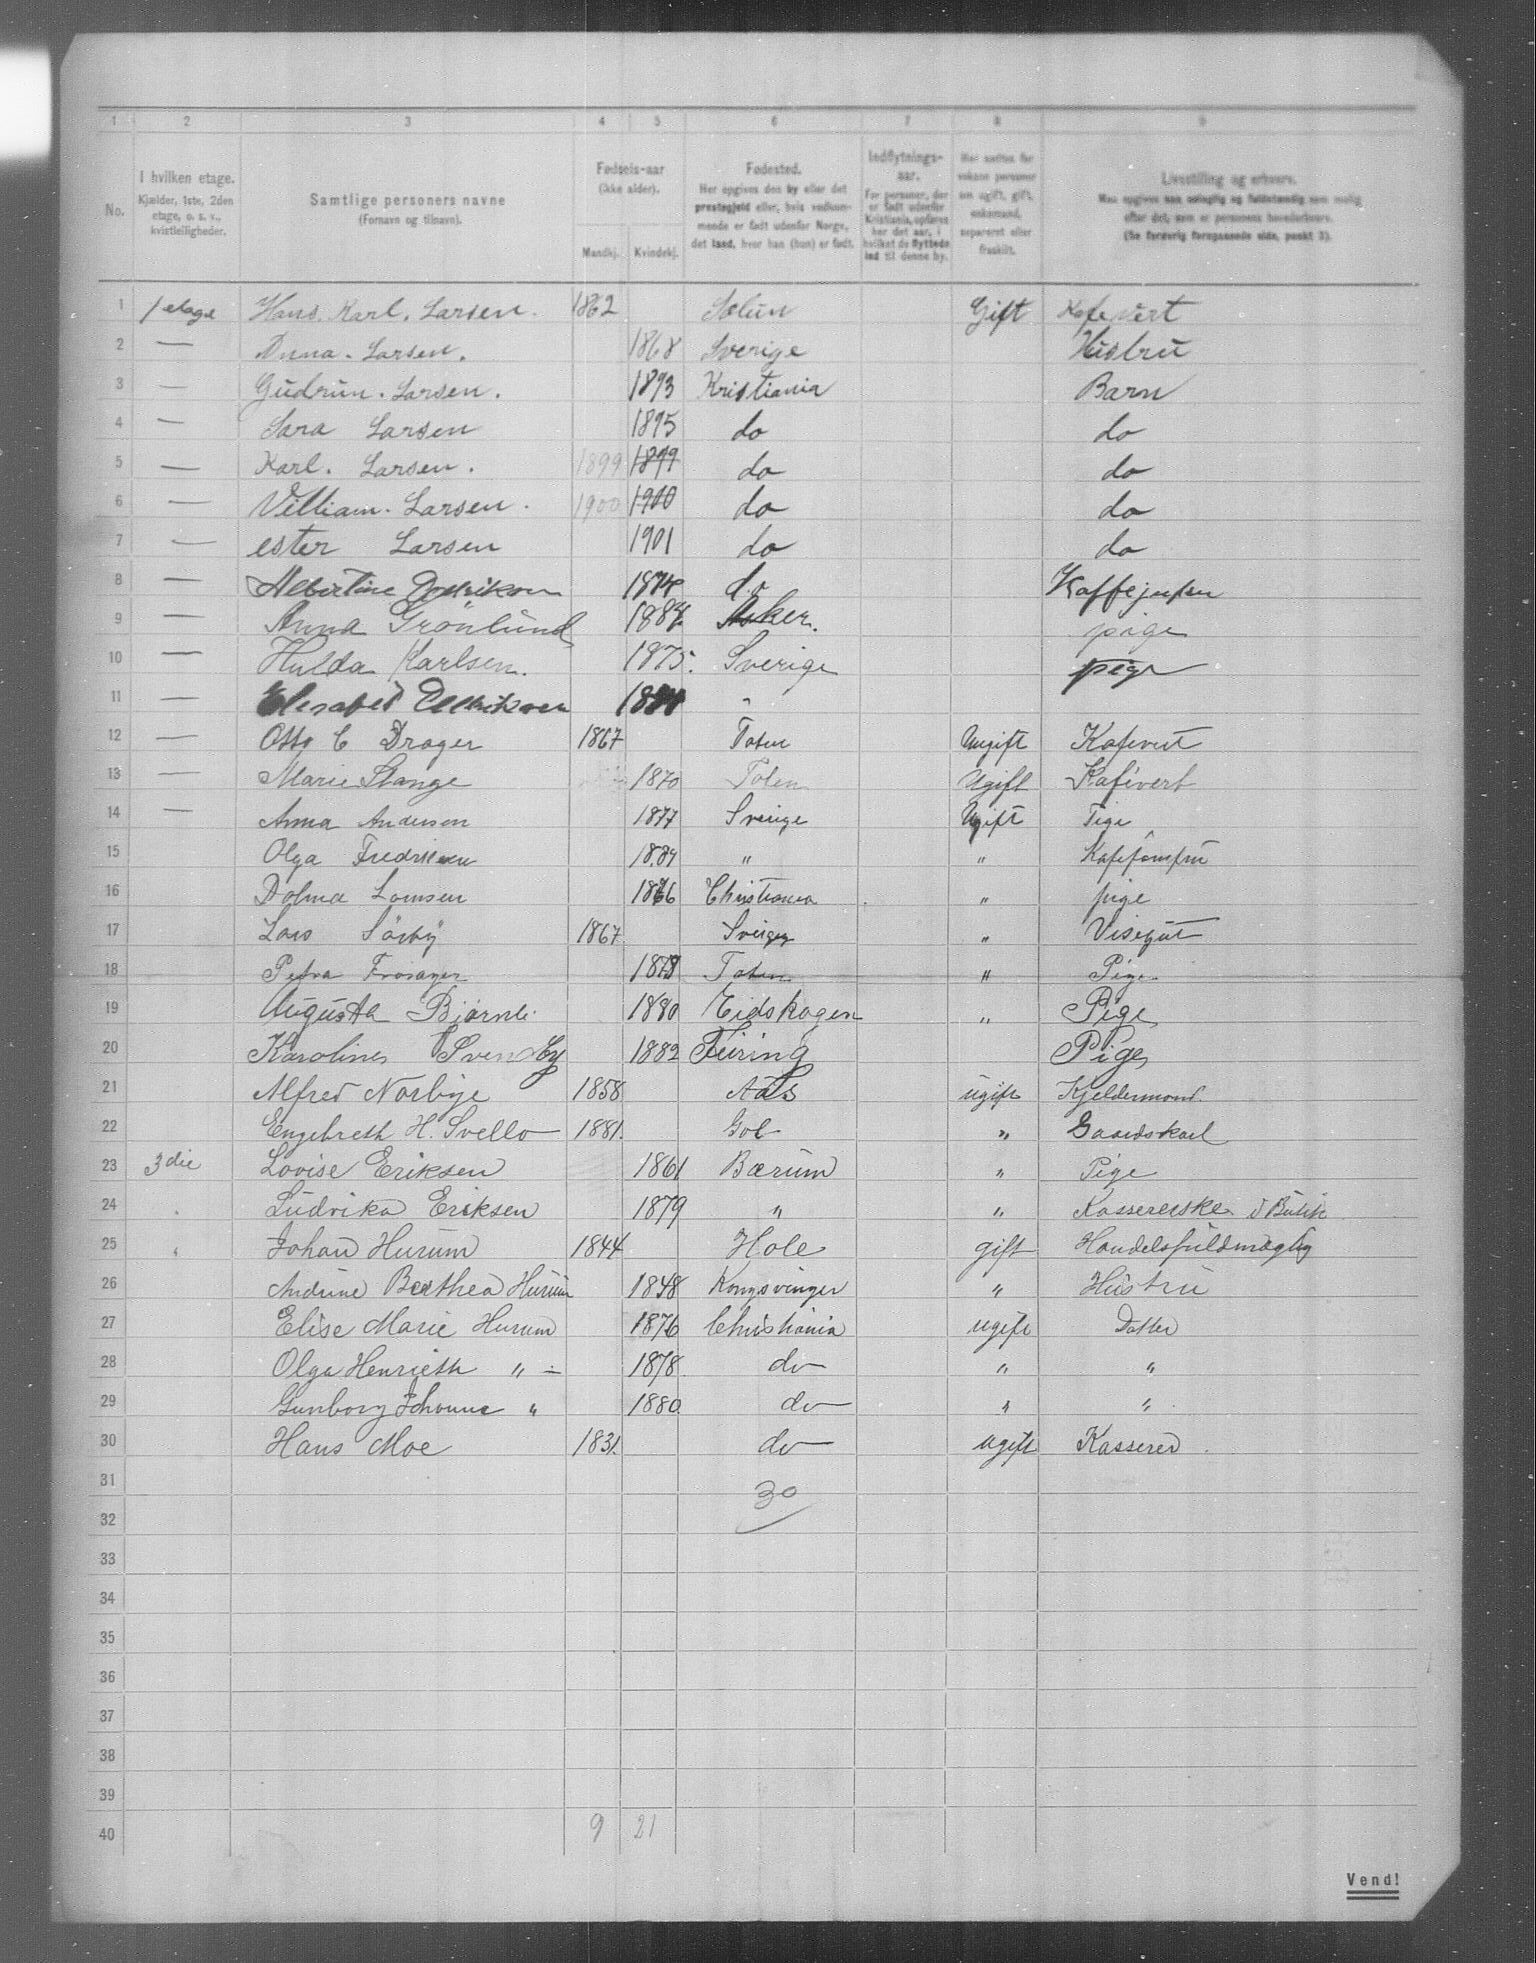 1 2 3 4 5 6 7 8 9
No. I hvilken etage. Kjælder, 1ste, 2den etage, o. s. v., kvistleiligheder. Samtlige personers navne (Fornavn og tilnavn). Fødsels-aar (ikke alder). Mandkj. Kvindekj. Fødested. Her opgives den by eller det prestegjeld eller, hvis vedkommende er født udenfor Norge, det land, hvor han (hun) er født. Indflytnings-aar. For personer, der er født udenfor Kristiania, opføres her det aar, i hvilket de flyttede ind til denne by. Her anføres for voksne personer om ugift, gift, enkemand, separeret eller fraskilt. Livsstilling og erhverv. Maa opgives saa nøiaglig og fuldstændig som mulig efter det, som er personens hovederhverv. (Se forøvrig foregaaende side, punkt 3).
1 1 etage Hans Karl. Larsen. 1862 Solun Gift Kafevert
2 — Anna. Larsen. 1868 Sverige Hustru
3 — Gudrun. Larsen. 1893 Kristiania Barn
4 — Sara Larsen 1895 do do
5 — Karl. Larsen. 1899 1899 do do
6 — Villiam. Larsen. 1900 1900 do do
7 — ester Larsen 1901 do do
8 — Albertine do
9 — Anna Grönlund Asker. pige
10 — Hulda Karlsen. 1875. Sverige pige
11 — Elisabet
12 — Otto C Drager 1867 Toten Ungift Kafevert
13 — Marie Stange 1870 Toten Ugift Kafévert
14 — Anna Anderson 1877 Sverige Ugift Pige
15 Olga Fredriksen 1884 " " Kafejomfru
16 Dolma Lomsen 1876 Christiania " pige
17 Lars Sörby 1867 Sverige " Visegut
18 Petra Frosager 1878 Toten " Pige
19 Augusta Bjørnli 1880 Eidskogen " Pige
20 Karoline Svendby 1882 Feiring Pige
21 Alfred Norbye 1858 Aas ugift Kjeldermand.
22 Engebreth H. Svello 1881. Gol " Gaardskarl
23 3die Lovise Eriksen 1861 Bærum " Pige
24 Ludvika Eriksen 1879 " " Kassererske i Butik
25 Johan Hurum 1844 Hole gift Handelsfuldmægtig
26 Andrine Berthea Hurum 1848 Kongsvinger " Hustru
27 Elise Marie Hurum 1876 Christiania ugift Datter
28 Olga Henrieth " — 1878. do " "
29 Gunborg Johanne " 1880. do " "
30 Hans Moe 1831. do ugift Kasserer
31
30
32
33
34
35
36
37
38
39
40 9 21
Vend!